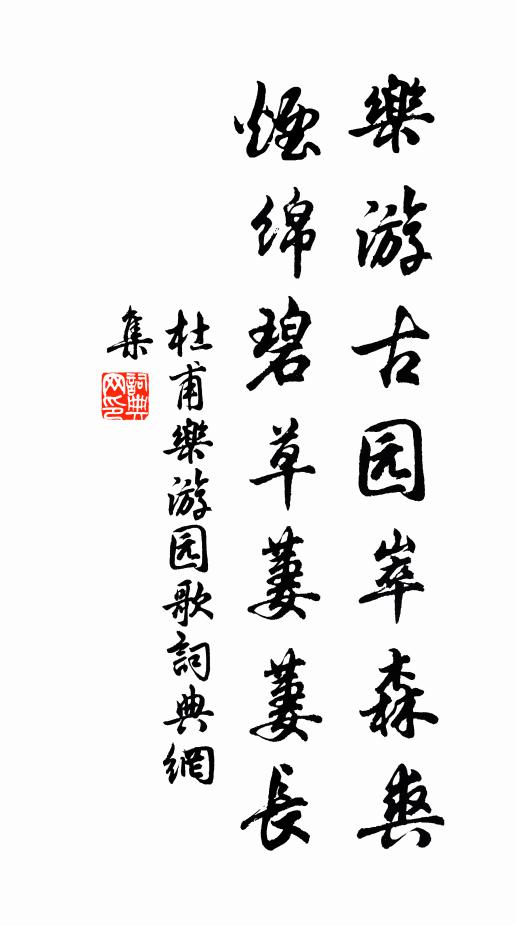 樂游古园崒森爽
煙绵碧草萋萋長
杜甫樂游园歌詞典網
集
詞典网印